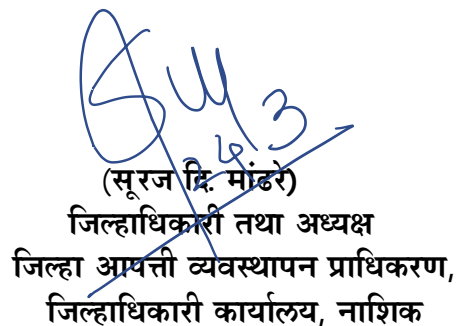 24/3
(सूरज दि. मांढरे)
जिल्हाधिकारी तथा अध्यक्ष
जिल्हा आपत्ती व्यवस्थापन प्राधिकरण,
जिल्हाधिकारी कार्यालय, नाशिक